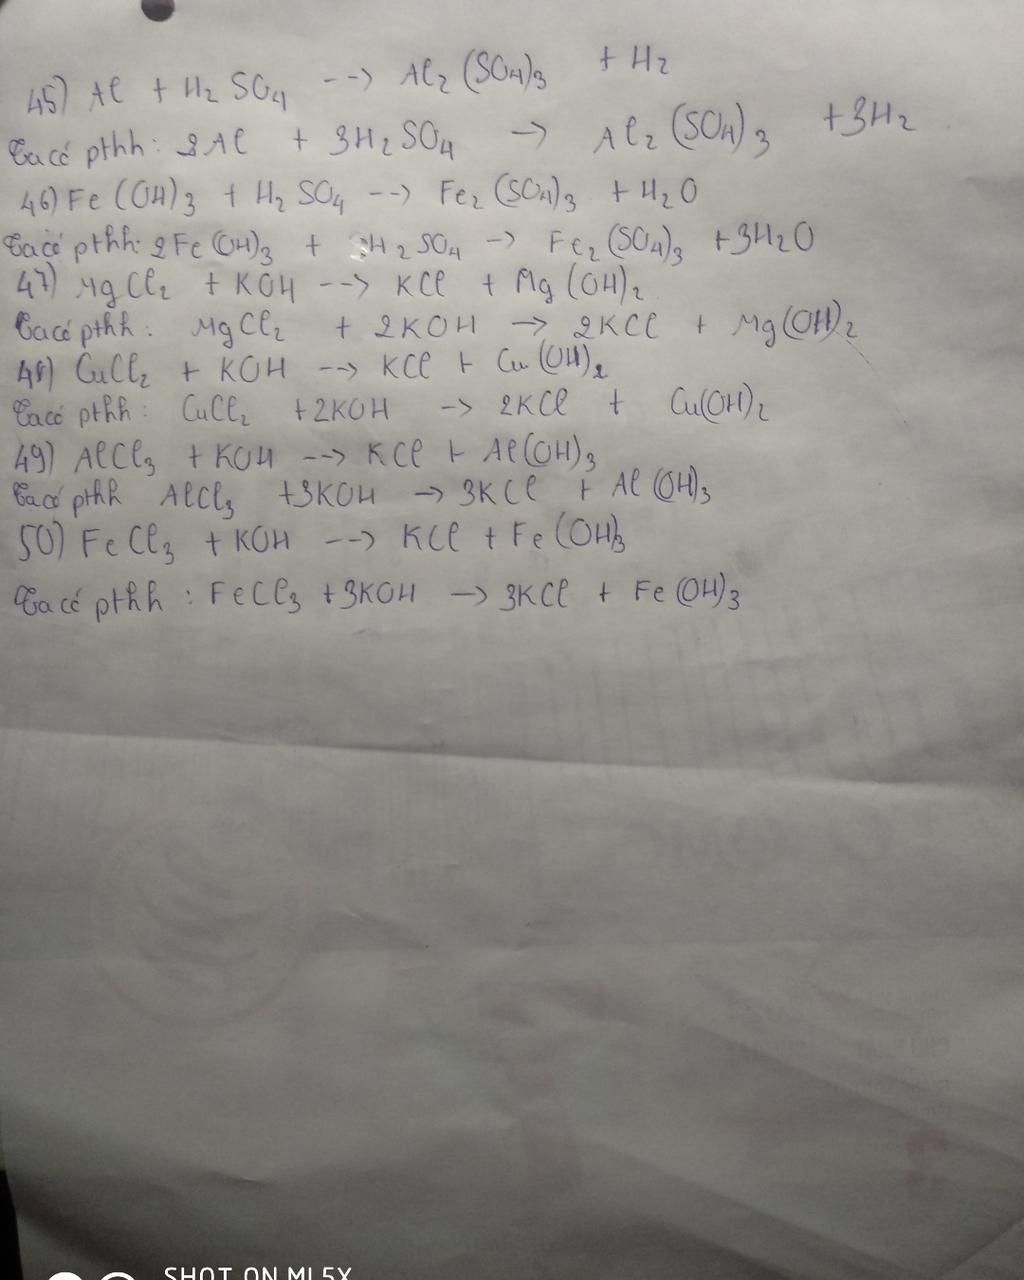 45) Al + H₂SO₄ --> Al₂(SO₄)₃ + H₂
Ta có pthh: 2Al + 3H₂SO₄ → Al₂(SO₄)₃ + 3H₂
46) Fe(OH)₃ + H₂SO₄ --> Fe₂(SO₄)₃ + H₂O
Ta có pthh: 2Fe(OH)₃ + H₂SO₄ → Fe₂(SO₄)₃ + 3H₂O
47) MgCl₂ + KOH --> KCl + Mg(OH)₂
Ta có pthh: MgCl₂ + 2KOH → 2KCl + Mg(OH)₂
48) CuCl₂ + KOH --> KCl + Cu(OH)₂
Ta có pthh: CuCl₂ + 2KOH → 2KCl + Cu(OH)₂
49) AlCl₃ + KOH --> KCl + Al(OH)₃
Ta có pthh AlCl₃ + 3KOH → 3KCl + Al(OH)₃
50) FeCl₃ + KOH --> KCl + Fe(OH)₃
Ta có pthh: FeCl₃ + 3KOH → 3KCl + Fe(OH)₃
SHOT ON MI 5X